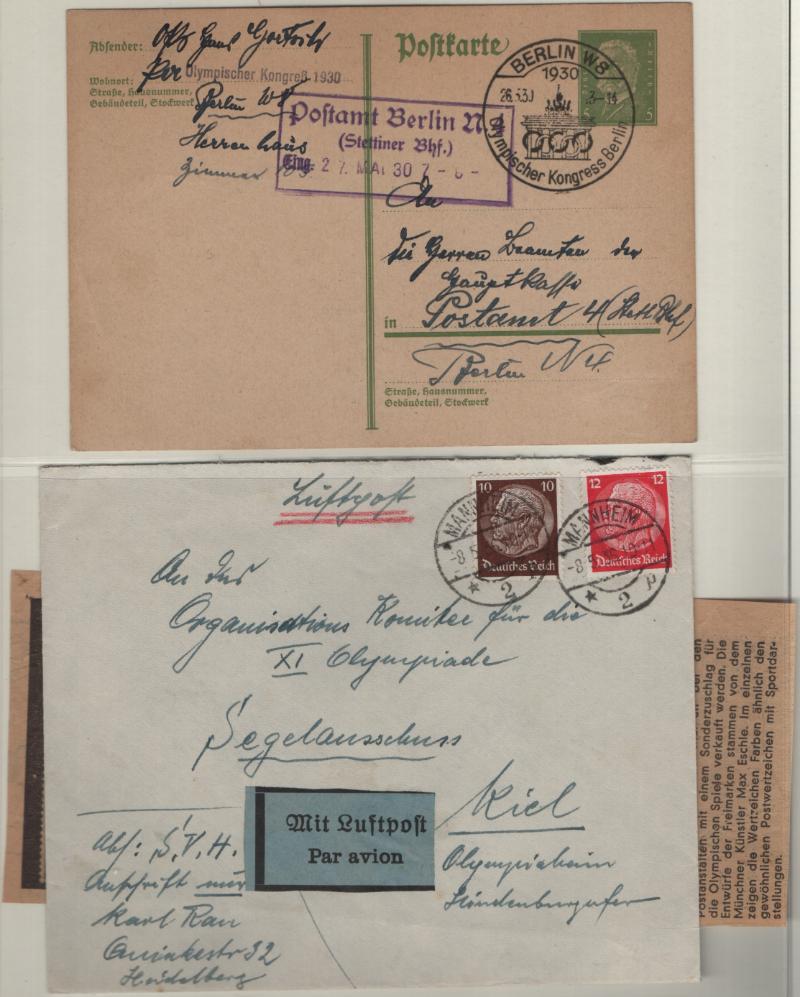 Absender:
Postkarte
Olympischer Kongreß 1930
Wohnort:
Straße, Hausnummer,
Gebäudeteil, Stockwerk
Berlin W8
Herrenhaus
Zimmer
BERLIN W8
1930
26.5.30
3-14
Olympischer Kongress Berlin
5
Postamt Berlin N 4
(Stettiner Bhf.)
Eing. 27. MAI 30 7-8-
An
die Herren Beamten der
Hauptkasse
in Postamt 4 (Stett. Bhf)
Berlin N4.
Straße, Hausnummer,
Gebäudeteil, Stockwerk
Luftpost
10 10
Deutsches Reich
12 12
Deutsches Reich
MANNHEIM
2
MANNHEIM
2
An das
Organisations Komitee für die
XI Olympiade
Segelausschuss
Kiel
Olympiaheim
Hindenburgufer
Mit Luftpost
Par avion
Abs: S.V.H.
Anschrift nur
Karl Rau
Quinkestr 32
Heidelberg
Postanstalten mit einem Sonderzuschlag für
die Olympischen Spiele verkauft werden. Die
Entwürfe der Freimarken stammen von dem
Münchner Künstler Max Eschle. Im einzelnen
zeigen die Wertzeichen Farben ähnlich den
gewöhnlichen Postwertzeichen mit Sportdar-
stellungen.